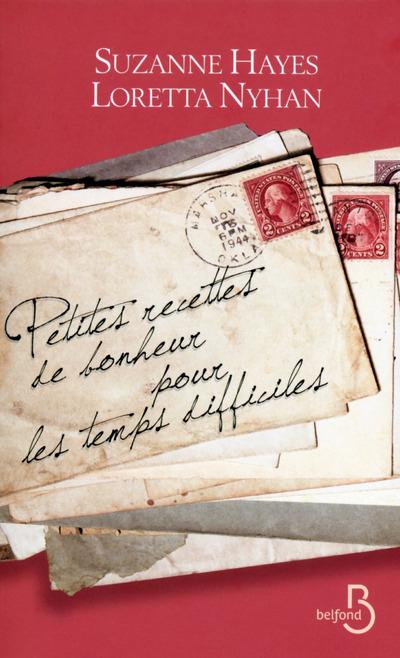 SUZANNE HAYES
LORETTA NYHAN
MARSHA
NOV
6 PM
1944
OKLA
UNITED STATES POSTAGE
2 CENTS 2
2 CENTS 2
Petites recettes
de bonheur
pour
les temps difficiles
belfond